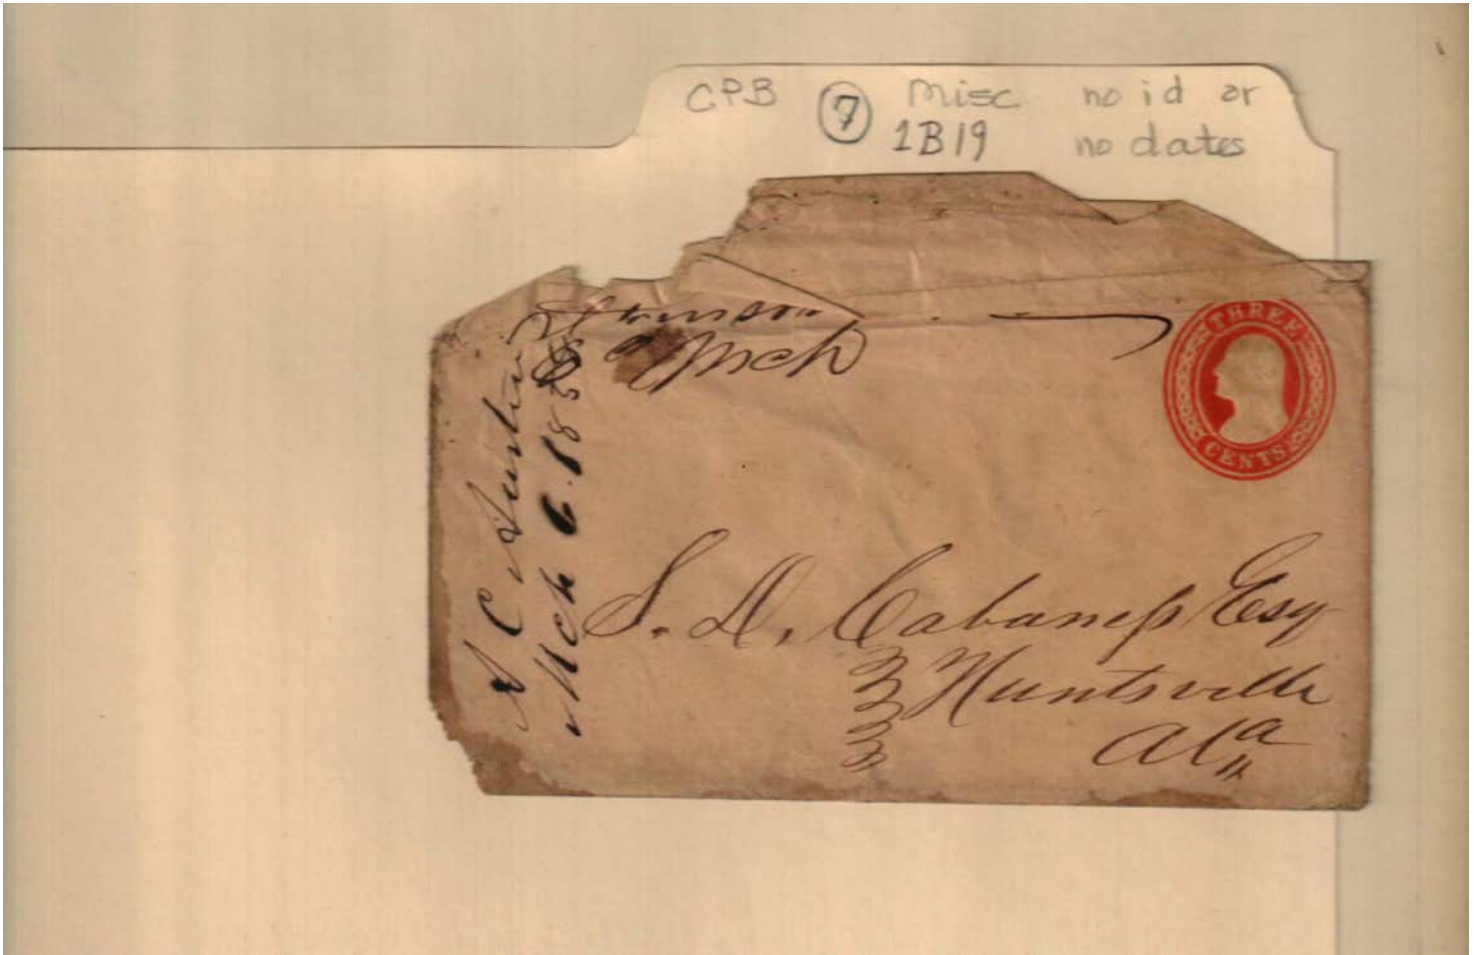 CPB ⑦ Misc no id or
1B19 no dates
Mch
THREE
CENTS
A C Austin
Mch 6. 185
S. D. Cabaness Esq
Huntsville
Ala